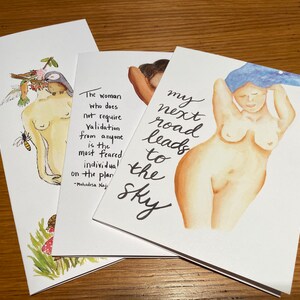 The woman
who does
not require
validation
from anyone
is the
most feared
individual
on the plan
my
next
road
leads
to
the
sky